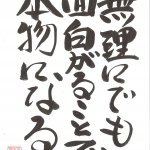 無理にでも
面白がることで
本物になる